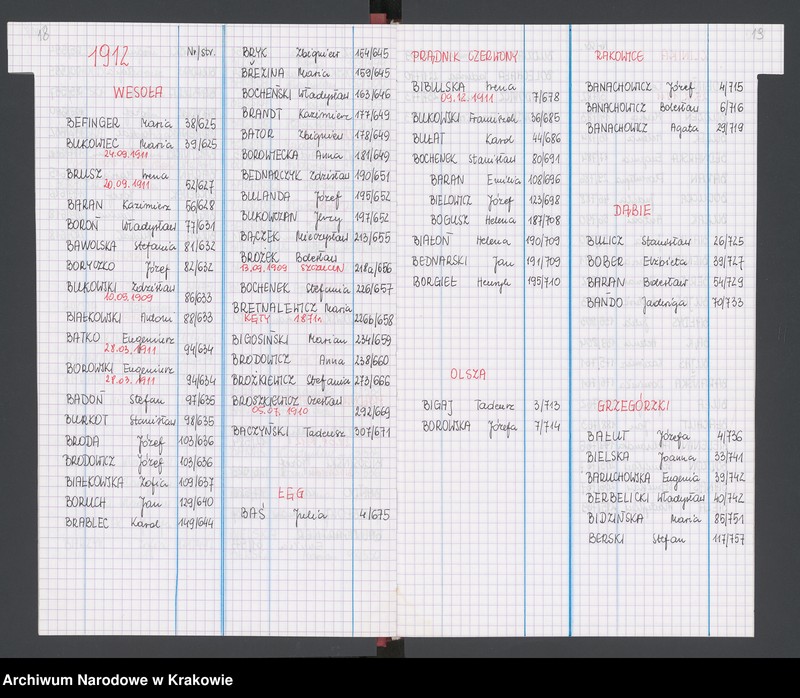 18
1912
Nr/str.
WESOŁA
BEFINGER Maria 38/625
BUKOWIEC Maria 39/625
24.09.1911
BRUSZ Irena
20.09.1911 52/627
BARAN Kazimierz 56/628
BOROŃ Władysław 77/631
BAWOLSKA Stefania 81/632
BORYCZKO Józef 82/632
BUKOWSKI Zdzisław
10.09.1909 86/633
BIAŁKOWSKI Adam 88/633
BATKO Eugeniusz
28.03.1911 94/634
BOROWSKI Eugeniusz
28.03.1911 94/634
BADOŃ Stefan 97/635
BURKOT Stanisław 98/635
BRODA Józef 103/636
BRODOWICZ Józef 103/636
BIAŁKOWSKA Zofia 109/637
BORUCH Jan 129/640
BRABLEC Karol 149/644
BRYK Zbigniew 154/645
BŘEZINA Maria 159/645
BOCHEŃSKI Władysław 163/646
BRANDT Kazimierz 177/649
BATOR Zbigniew 178/649
BOROWIECKA Anna 181/649
BEDNARCZYK Zdzisław 190/651
BULANDA Józef 195/652
BUKOWCZAN Jerzy 197/652
BĄCZEK Mieczysław 213/655
BROŻEK Bolesław
13.09.1909 218a/656
BOCHENEK Stefania 226/657
BRETNALEWICZ Maria
KĘTY 1871r. 226b/658
BIGOSIŃSKI Marian 234/659
BRODOWICZ Anna 238/660
BROŻKIEWICZ Stefania 273/666
BROSZKIEWICZ Czesław
05.07.1910 292/669
BACZYŃSKI Tadeusz 307/671
ŁĘG
BAŚ Julia 4/675
19
PRĄDNIK CZERWONY
BIBULSKA Irena
09.12.1911 7/678
BUKOWSKI Franciszek 36/685
BUŁAT Karol 44/686
BOCHENEK Stanisław 80/691
BARAN Emilia 108/696
BIELOWICZ Józef 123/698
BOGUSZ Helena 187/708
BIAŁOŃ Helena 190/709
BEDNARSKI Jan 191/709
BORGIEŁ Henryk 195/710
OLSZA
BIGAJ Tadeusz 3/713
BOROWSKA Józefa 7/714
RAKOWICE
BANACHOWICZ Józef 4/715
BANACHOWICZ Bolesław 6/716
BANACHOWICZ Agata 29/719
DĄBIE
BULICZ Stanisław 26/725
BOBER Elżbieta 39/727
BARAN Bolesław 54/729
BAŃDO Jadwiga 70/733
GRZEGÓRZKI
BAŁUT Józefa 4/736
BIELSKA Joanna 33/741
BARUCHOWSKA Eugenia 39/742
BERBELICKI Władysław 40/742
BIDZIŃSKA Maria 85/751
BERSKI Stefan 117/757
Archiwum Narodowe w Krakowie